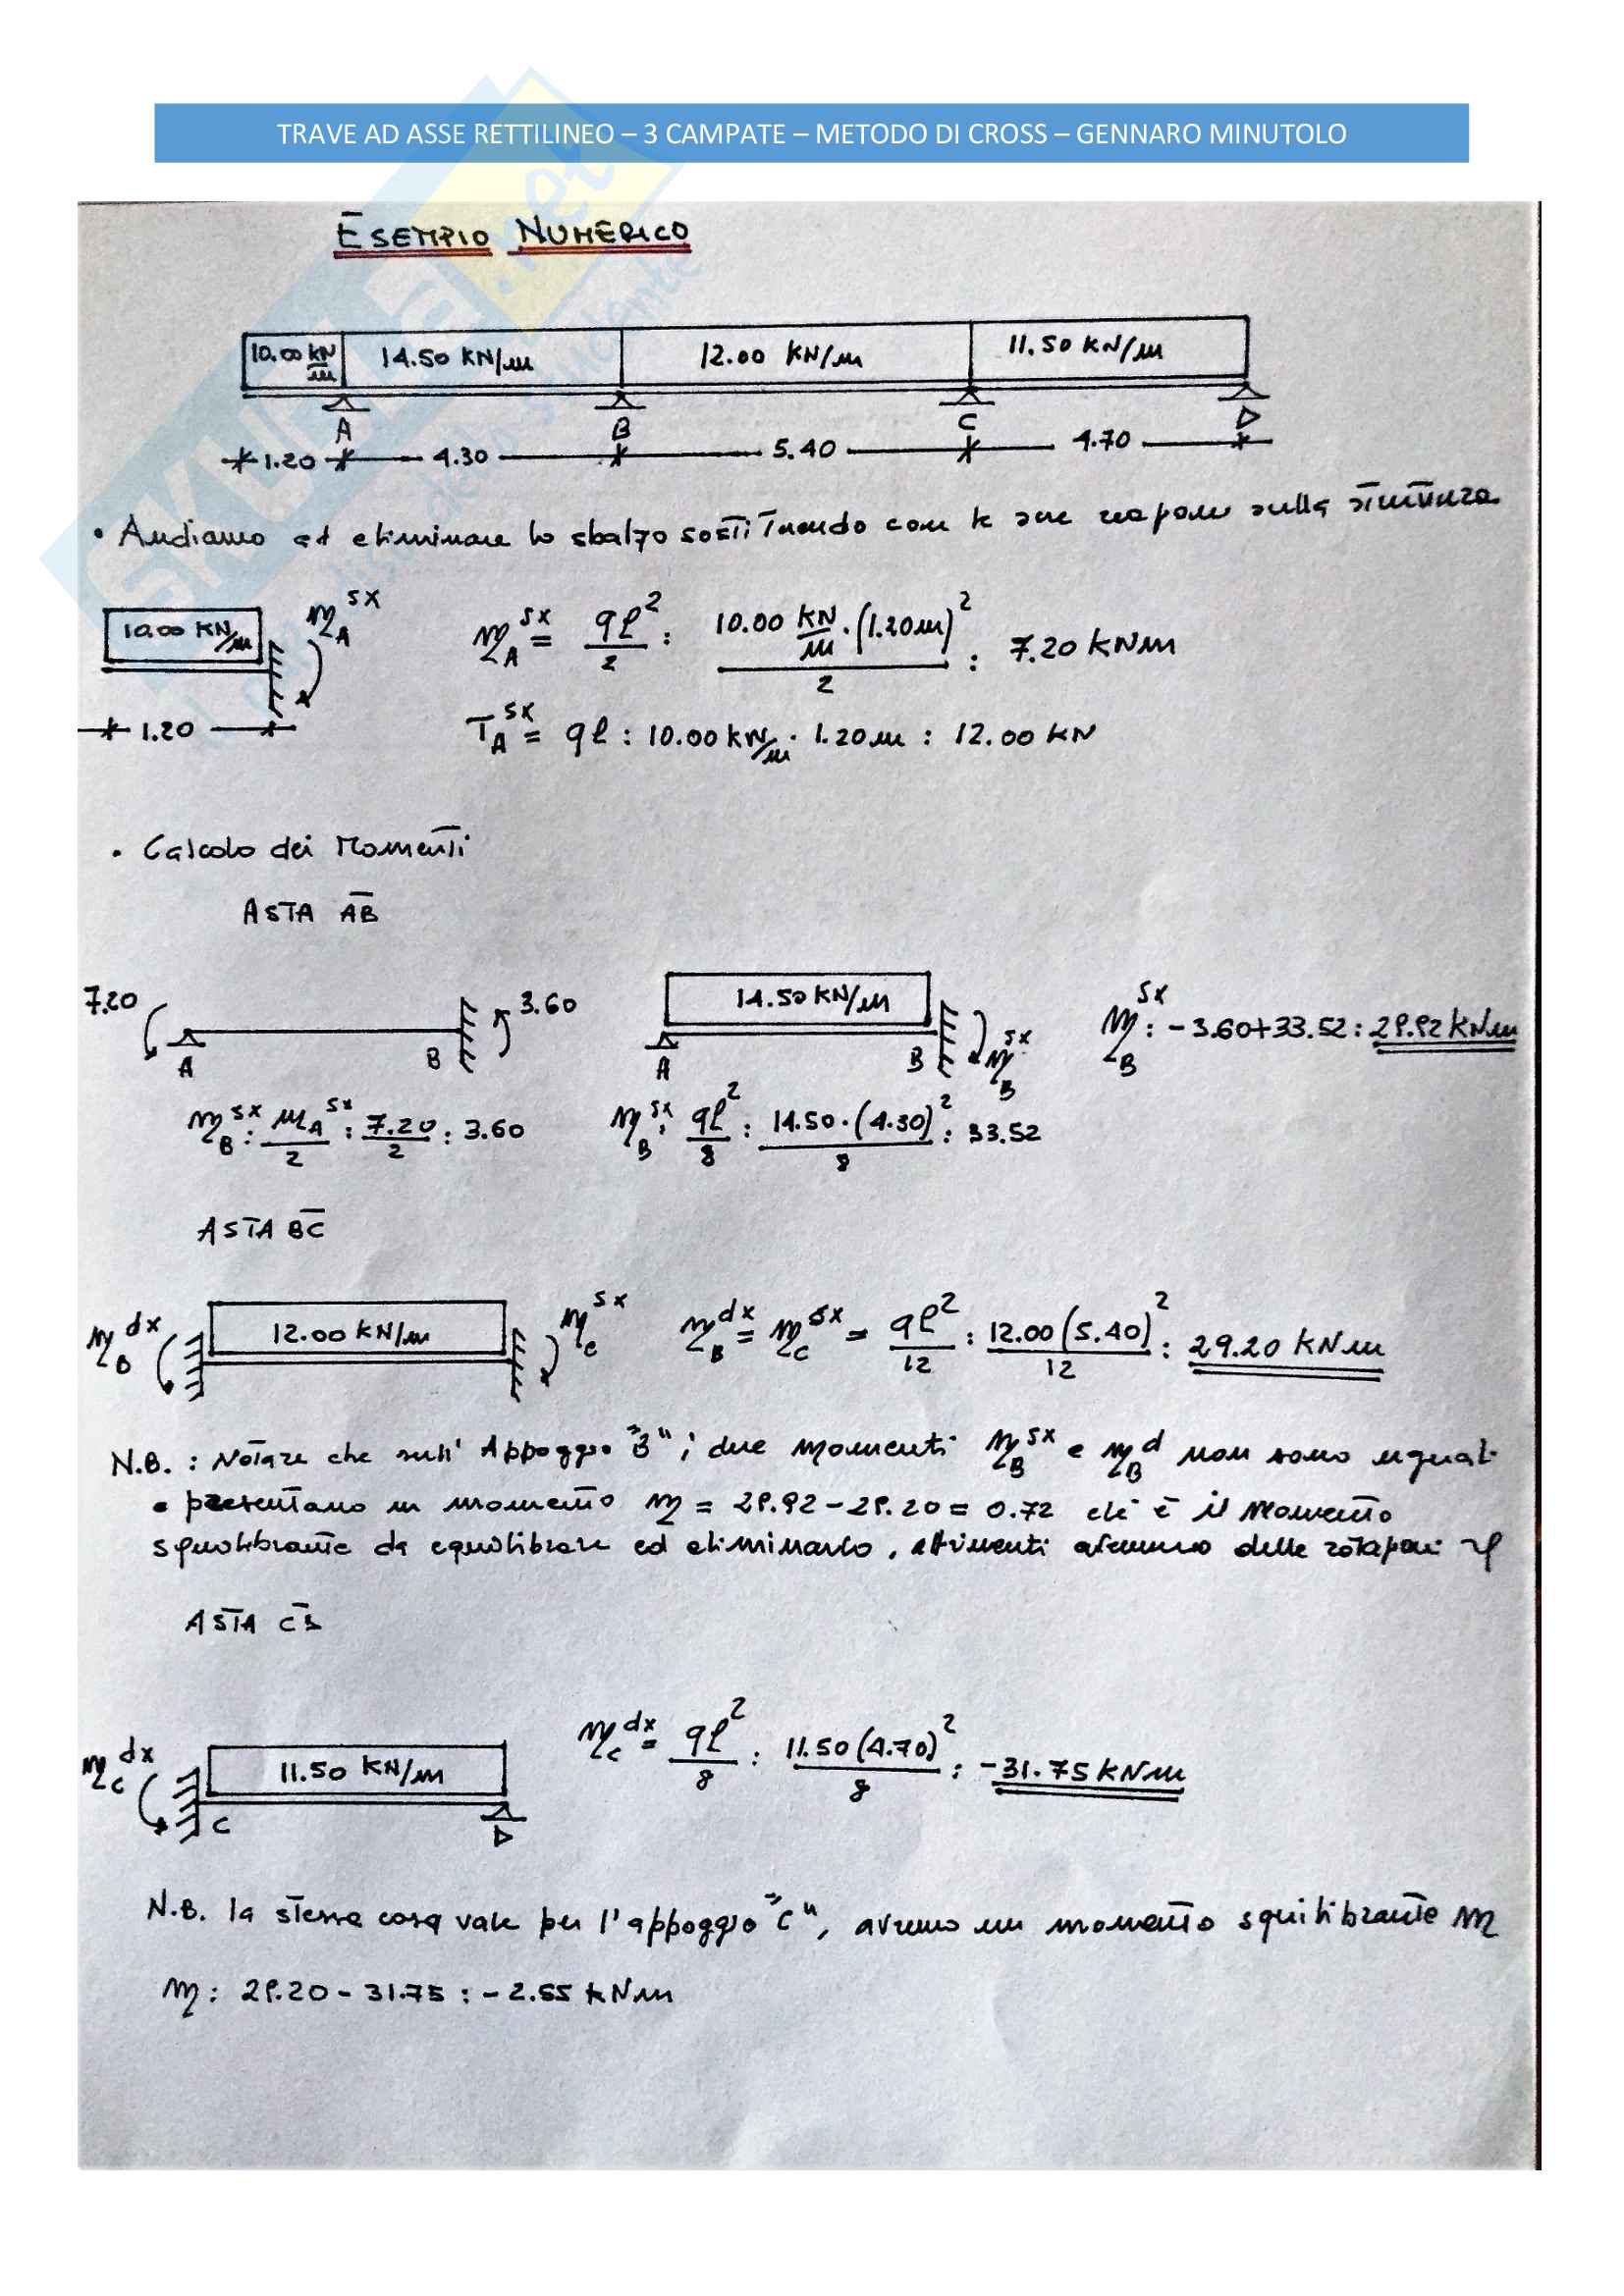 TRAVE AD ASSE RETTILINEO – 3 CAMPATE – METODO DI CROSS – GENNARO MINUTOLO
ESEMPIO NUMERICO
10.00 kN/m 14.50 KN/m 12.00 KN/m 11.50 KN/m
A B C D
1.20 4.30 5.40 4.70
• Andiamo ad eliminare lo sbalzo sostituendo con le sulla struttura
10.00 KN/m M_A^sx M_A^sx = ql²/2 : 10.00 kN/m · (1.20m)²/2 : 7.20 KNm
1.20 T_A^sx = ql : 10.00 kN/m · 1.20m : 12.00 KN
• Calcolo dei Momenti
ASTA AB
7.20 A B 3.60 14.50 KN/m A B M_B^sx M_B^sx : -3.60+33.52 : 29.92 kNm
M_B^sx : M_A^sx/2 : 7.20/2 : 3.60 M_B^sx : ql²/8 : 14.50·(4.30)²/8 : 33.52
ASTA BC
M_B^dx 12.00 KN/m M_C^sx M_B^dx = M_C^sx = ql²/12 : 12.00(5.40)²/12 : 29.20 KNm
N.B. : Notare che sull' Appoggio "B", i due momenti M_B^sx e M_B^d non sono uguali
e presentano un momento M = 29.92 - 29.20 = 0.72 che è il Momento
squilibrante da equilibrare ed eliminarlo, altrimenti avremmo delle rotazioni φ
ASTA
M_C^dx 11.50 KN/m C D M_C^dx = ql²/8 : 11.50(4.70)²/8 : -31.75 KNm
N.B. la stessa cosa vale per l'appoggio "C", avremo un momento squilibrante M
M : 29.20 - 31.75 : -2.55 KNm